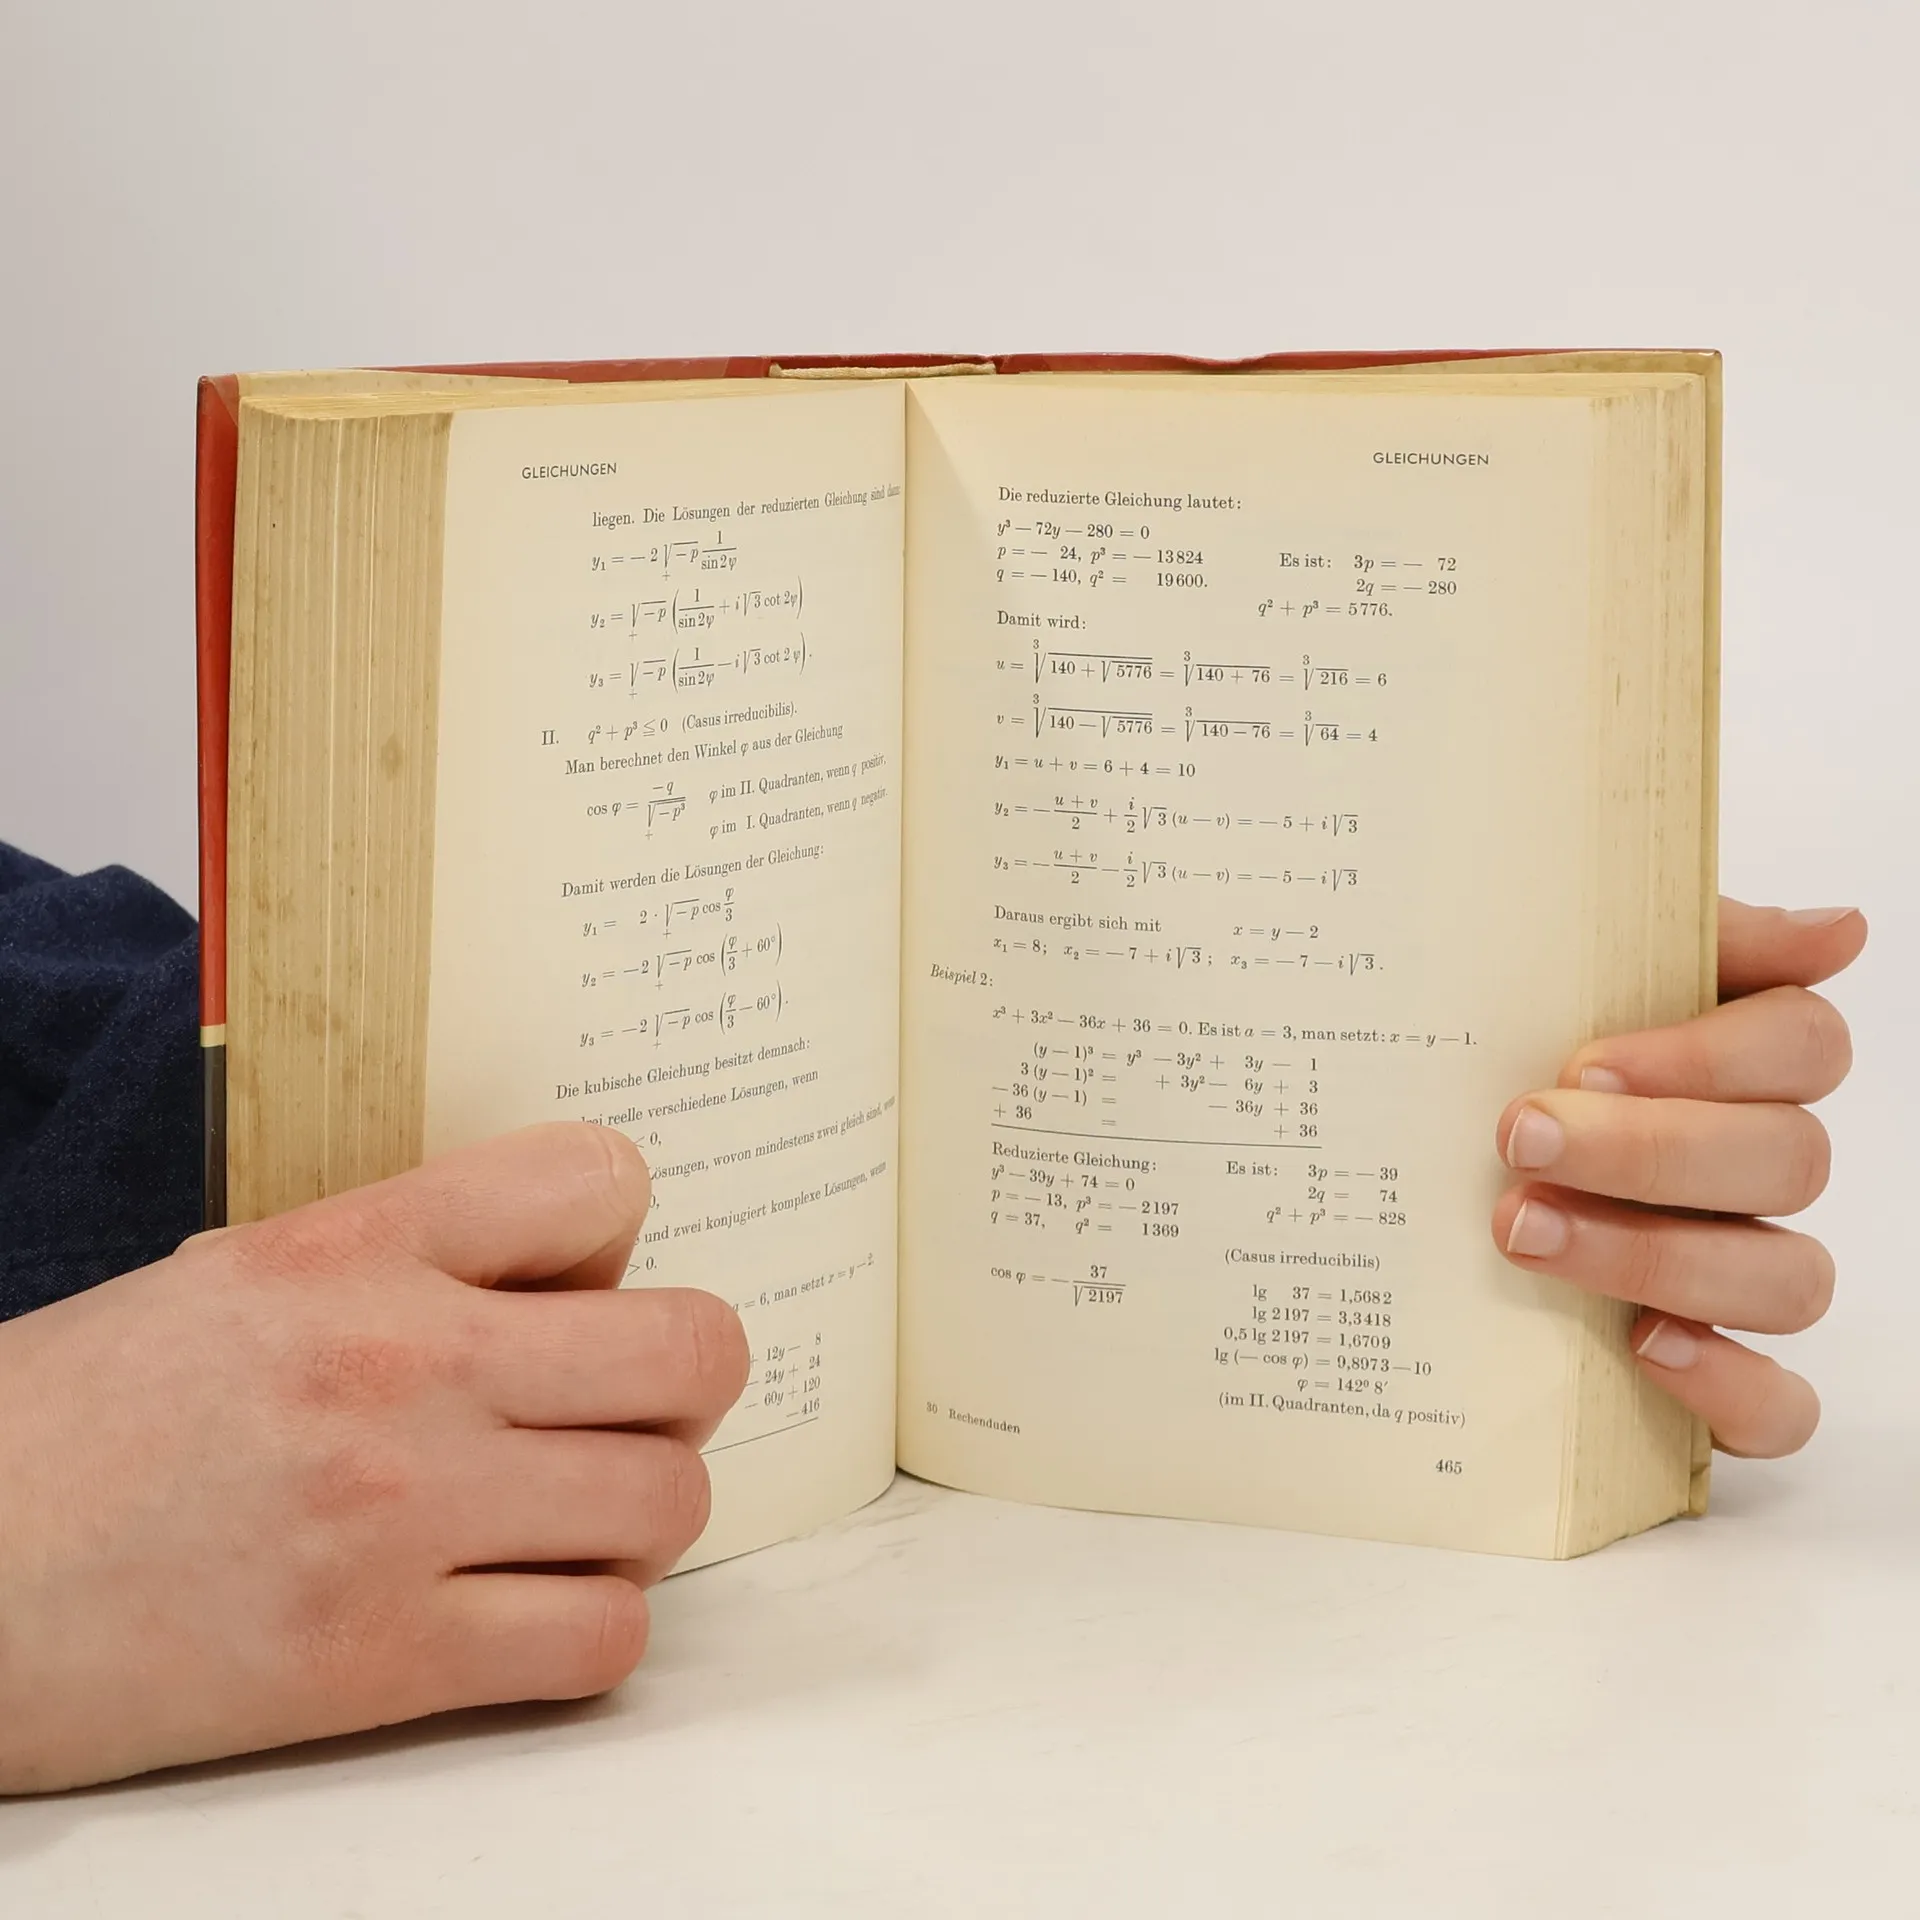 GLEICHUNGEN
liegen. Die Lösungen der reduzierten Gleichung sind dann:
y₁ = — 2 √—p 1/sin 2φ
+
y₂ = √—p (1/sin 2φ + i √3 cot 2φ)
+
y₃ = √—p (1/sin 2φ — i √3 cot 2 φ).
+
II. q² + p³ ≦ 0 (Casus irreducibilis).
Man berechnet den Winkel φ aus der Gleichung
cos φ = —q/√—p³ φ im II. Quadranten, wenn q positiv.
+
φ im I. Quadranten, wenn q negativ.
Damit werden die Lösungen der Gleichung:
y₁ = 2 · √—p cos φ/3
+
y₂ = —2 √—p cos (φ/3 + 60°)
+
y₃ = —2 √—p cos (φ/3 — 60°).
+
Die kubische Gleichung besitzt demnach:
reelle verschiedene Lösungen, wenn
< 0,
Lösungen, wovon mindestens zwei gleich sind, wenn
0,
und zwei konjugiert komplexe Lösungen, wenn
> 0.
a = 6, man setzt x = y — 2.
+ 12y — 8
— 24y + 24
— 60y + 120
— 416
GLEICHUNGEN
Die reduzierte Gleichung lautet:
y³ — 72y — 280 = 0
p = — 24, p³ = — 13824 Es ist: 3p = — 72
q = — 140, q² = 19600. 2q = — 280
q² + p³ = 5776.
Damit wird:
u = ³√140 + √5776 = ³√140 + 76 = ³√216 = 6
v = ³√140 — √5776 = ³√140 — 76 = ³√64 = 4
y₁ = u + v = 6 + 4 = 10
y₂ = — u + v/2 + i/2 √3 (u — v) = — 5 + i √3
y₃ = — u + v/2 — i/2 √3 (u — v) = — 5 — i √3
Daraus ergibt sich mit x = y — 2
x₁ = 8; x₂ = — 7 + i √3; x₃ = — 7 — i √3.
Beispiel 2:
x³ + 3x² — 36x + 36 = 0. Es ist a = 3, man setzt: x = y — 1.
(y — 1)³ = y³ — 3y² + 3y — 1
3 (y — 1)² = + 3y² — 6y + 3
— 36 (y — 1) = — 36y + 36
+ 36 = + 36
Reduzierte Gleichung: Es ist: 3p = — 39
y³ — 39y + 74 = 0 2q = 74
p = — 13, p³ = — 2197 q² + p³ = — 828
q = 37, q² = 1369
(Casus irreducibilis)
cos φ = — 37/√2197
lg 37 = 1,5682
lg 2197 = 3,3418
0,5 lg 2197 = 1,6709
lg (— cos φ) = 9,8973 — 10
φ = 142° 8′
(im II. Quadranten, da q positiv)
30 Rechenduden
465